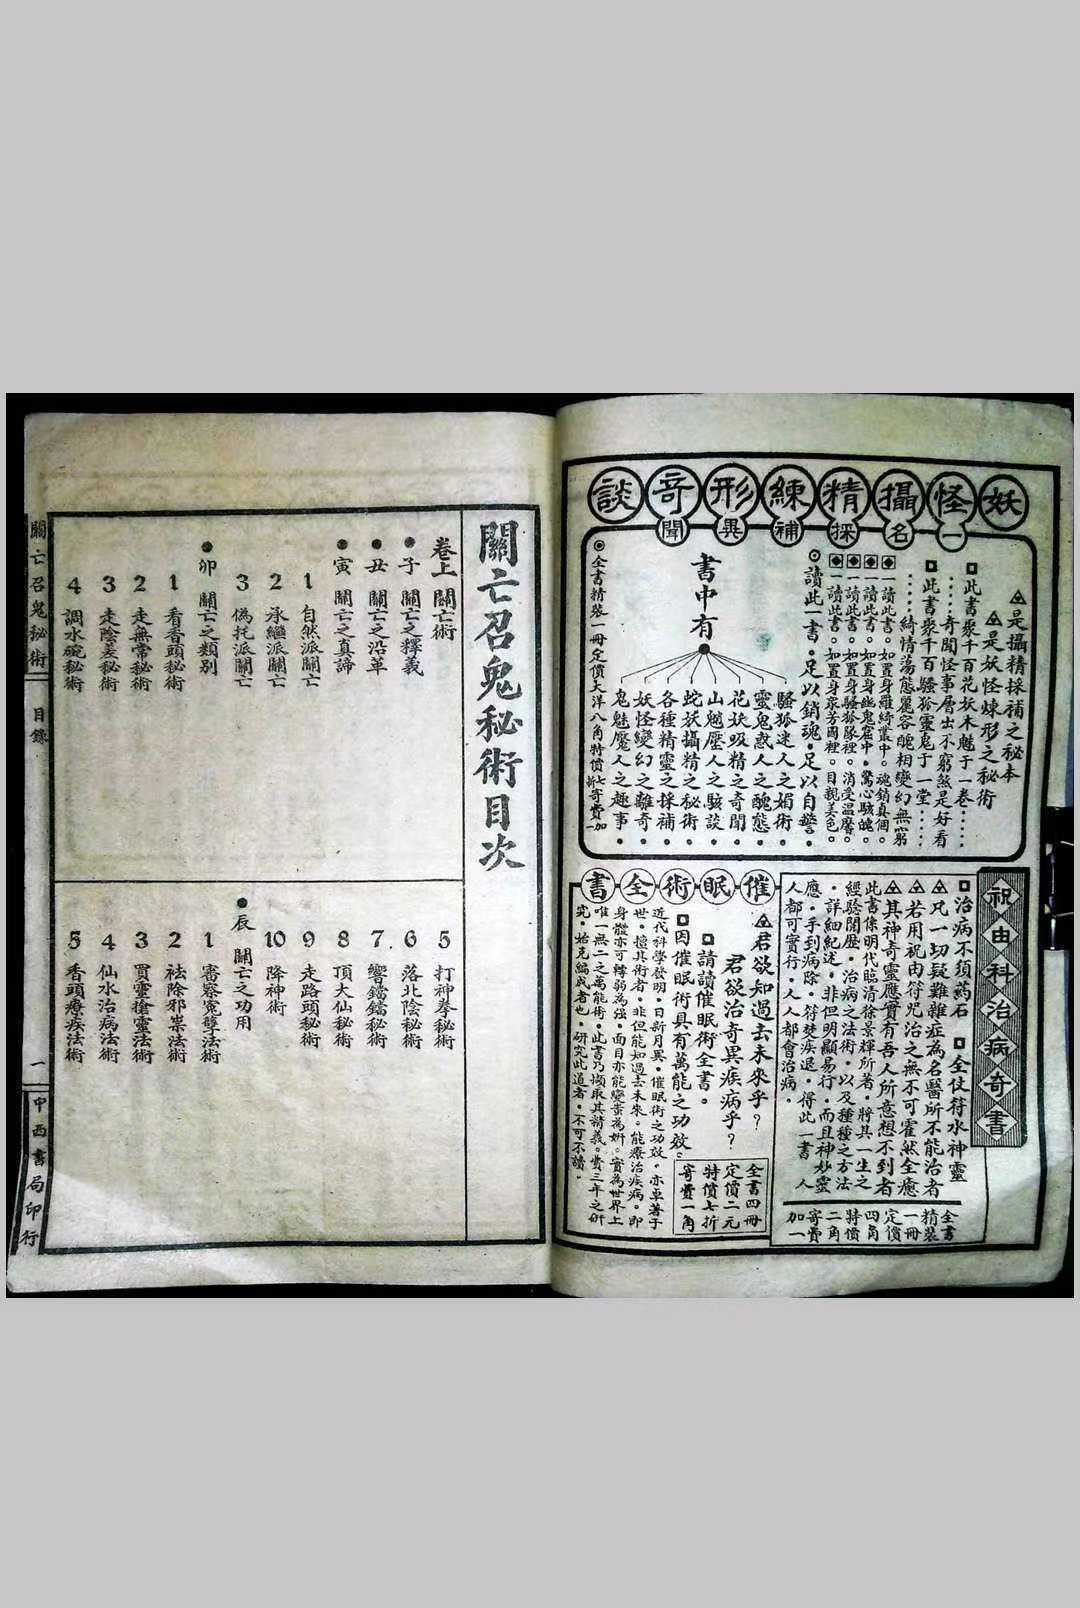 妖怪攝精練形奇談
一名採補異聞
是攝精採補之秘本
是妖怪煉形之秘術
此書聚千百花妖木魅于一卷‥‥
‥‥奇聞怪事層出不窮煞是好看
此書聚千百騷狐靈鬼于一堂‥‥
‥‥綺情蕩態麗容醜相變幻無窮
一讀此書。如置身羅綺叢中。魂銷真個。
一讀此書。如置身幽鬼窟中。驚心駭魄。
一讀此書。如置身騷狐隊裡。消受温馨。
一讀此書。如置身衆芳國裡。目覩美色。
讀此一書。足以銷魂。足以自警。
書中有
騷狐迷人之媚術
靈鬼惑人之醜態
花妖吸精之奇聞
山魈壓人之駭談
蛇妖攝精之秘術
各種精靈之採補
妖怪變幻之離奇
鬼魅魘人之趣事
全書精裝一冊定價大洋八角特價七折寄費加一
祝由科治病奇書
治病不須葯石
全仗符水神靈
凡一切疑難雜症為名醫所不能治者
若用祝由符咒治之無不可霍然全癒
其神奇靈應實有吾人所意想不到者
此書係明代臨清徐景輝所著。將其一生之
經驗閱歷。治病之法術。以及種種之方法
。詳細紀述。非但明顯易行。而且神妙靈
應。手到病除。符焚疾退。得此一書。人
人都可實行。人人都會治病。
全書
精裝
一冊
定價
四角
特價
二角
寄費
加一
催眠術全書
君欲知過去未來乎？
君欲治奇異疾病乎？
請讀催眠術全書。
因催眠術具有萬能之功效。
近代科學發明。日新月異。催眠術之功效。亦卓著于
世。擅其術者。非但能知過去未來。能療治疾病。即
身體亦可轉弱為強。面目亦能變媸為妍。實為世界上
唯一無二之萬能術。此書乃擷取其精義。費三年之研
究。始克編成者也。研究此道者。不可不讀。
全書四冊
定價二元
特價七折
寄費一角
關亡召鬼秘術目次
卷上 關亡術
子 關亡之釋義
丑 關亡之沿革
寅 關亡之真諦
1 自然派關亡
2 承繼派關亡
3 偽托派關亡
卯 關亡之類別
1 看香頭秘術
2 走無常秘術
3 走陰差秘術
4 調水碗秘術
5 打神拳秘術
6 落北陰秘術
7 響鐺鐺秘術
8 頂大仙秘術
9 走路頭秘術
10 降神術
辰 關亡之功用
1 審察冤孽法術
2 祛除邪祟法術
3 買靈搶靈法術
4 仙水治病法術
5 香頭療疾法術
關亡召鬼秘術 目錄
一
中西書局印行